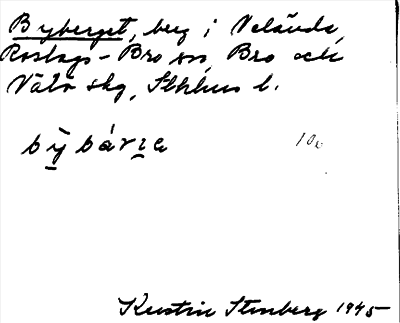 Byberget, berg i Velända,
Roslags-Bro sn, Bro och
Vätö skg, Sthlms l.
bỳbárɪe
10
Kerstin Stenberg 1945